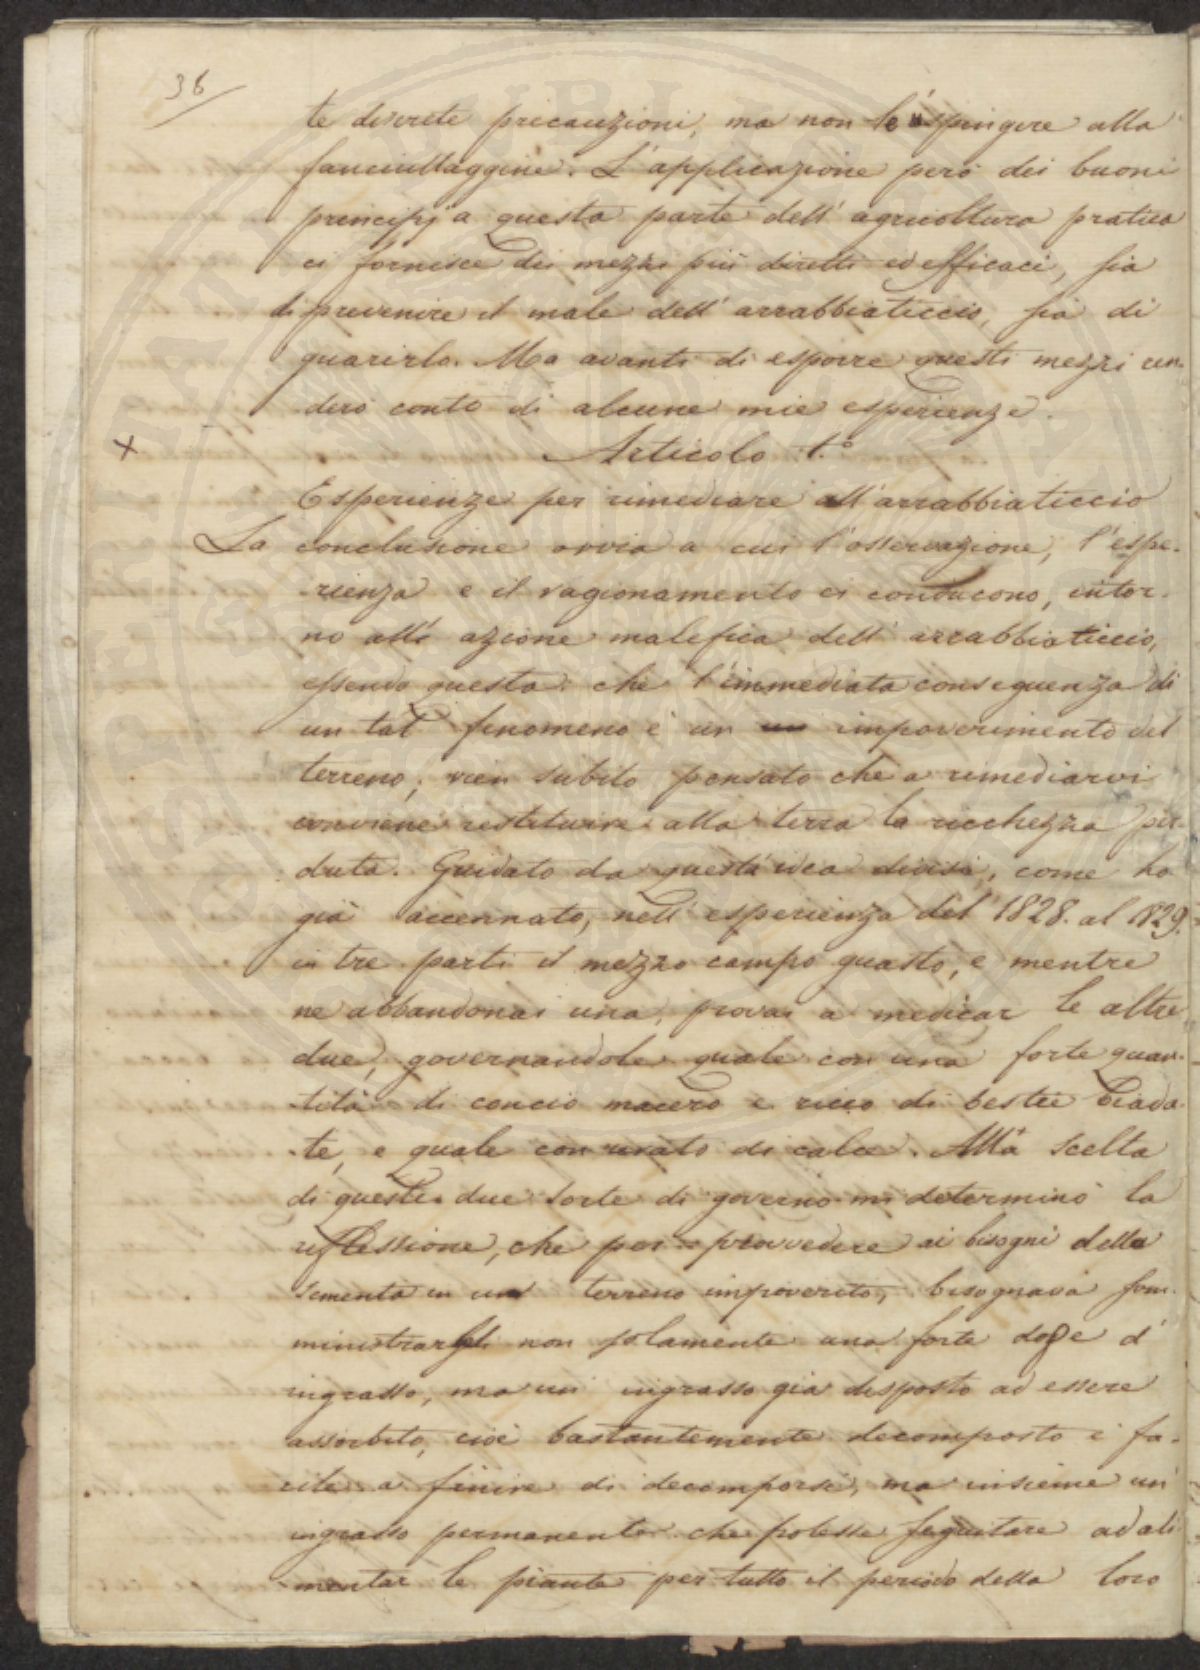 36
te discrete precauzioni, ma non le spingere alla
fanciullaggine. L'applicazione però dei buoni
principj a questa parte dell'agricoltura pratica
ci fornisce dei mezzi più diretti ed efficaci, sia
di prevenire il male dell'arrabbiaticcio, sia di
guarirlo. Ma avanti di esporre questi mezzi ren-
derò conto di alcune mie esperienze.
x
Articolo 1.º
Esperienze per rimediare all'arrabbiaticcio
La conclusione ovvia a cui l'osservazione, l'espe-
rienza e il ragionamento ci conducono, intor-
no all' azione malefica dell' arrabbiaticcio,
essendo questa che l'immediata conseguenza di
un tal fenomeno è un impoverimento del
terreno; vien subito pensato che a rimediarvi
conviene restituire alla terra la ricchezza per-
duta. Guidato da questa idea divisi, come ho
già accennato, nell'esperienza del 1828. al 1829.
in tre parti il mezzo campo guasto, e mentre
ne abbandonai una, provai a medicar le altre
due, governandole quale con una forte quan-
tità di concio macero e ricco di bestie biada-
te, e quale con urato di calce. Alla scelta
di queste due sorte di governo mi determinò la
reflessione, che per provvedere ai bisogni della
sementa in un terreno impoverito, bisognava som-
ministrargli non solamente una forte dose d'
ingrasso, ma un ingrasso già disposto ad essere
assorbito, cioè bastantemente decomposto e fa-
cile a finire di decomporsi, ma insieme un
ingrasso permanente che potesse seguitare ad ali
mentar le piante per tutto il periodo della loro